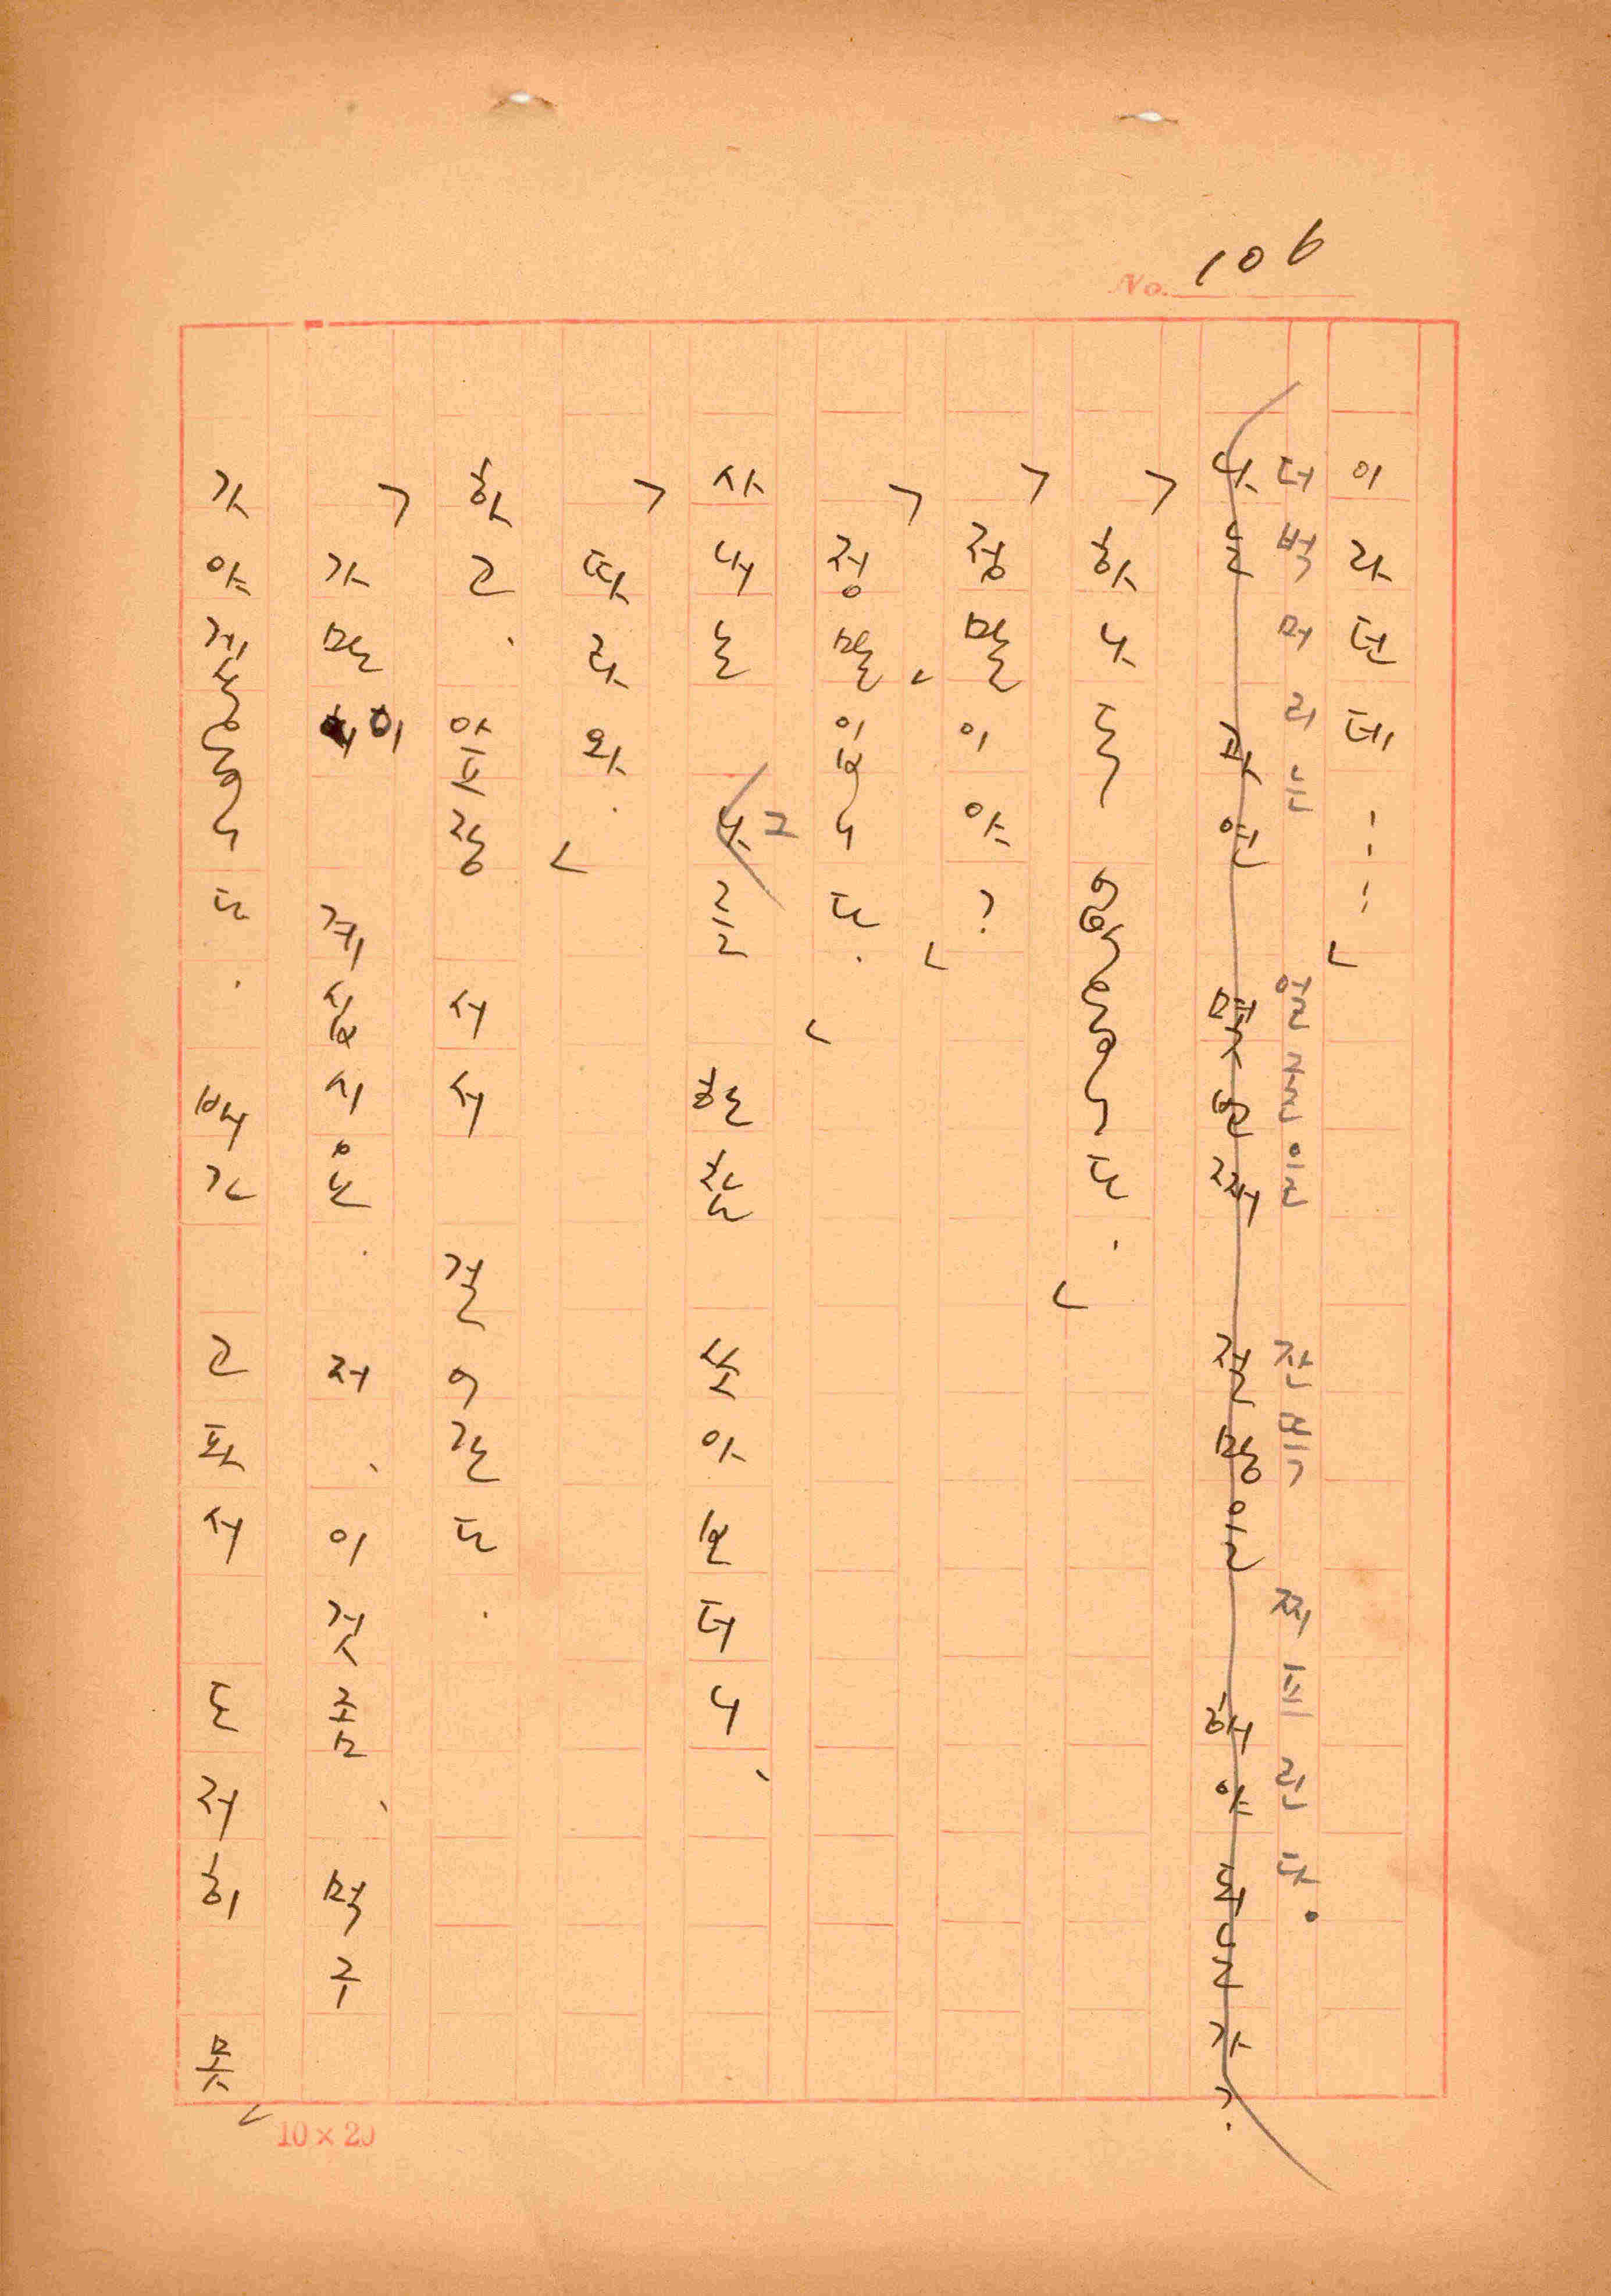 No. 106
이라던데……」
더벅머리는 얼굴을 잔뜩 찌프린다.
나는 과연 몇번째 절망을 해야 되는가?
「하나두 없읍니다.」
「정말이야?」
「정말, 입니다.」
사내는 나를 그 한참 쏘아보더니、
「따라와.」
하고、앞장 서서 걸어간다.
「가만히 계십시요. 저、이것좀、먹구
가야겠읍니다. 배가 고파서 도저히 못」
10×20